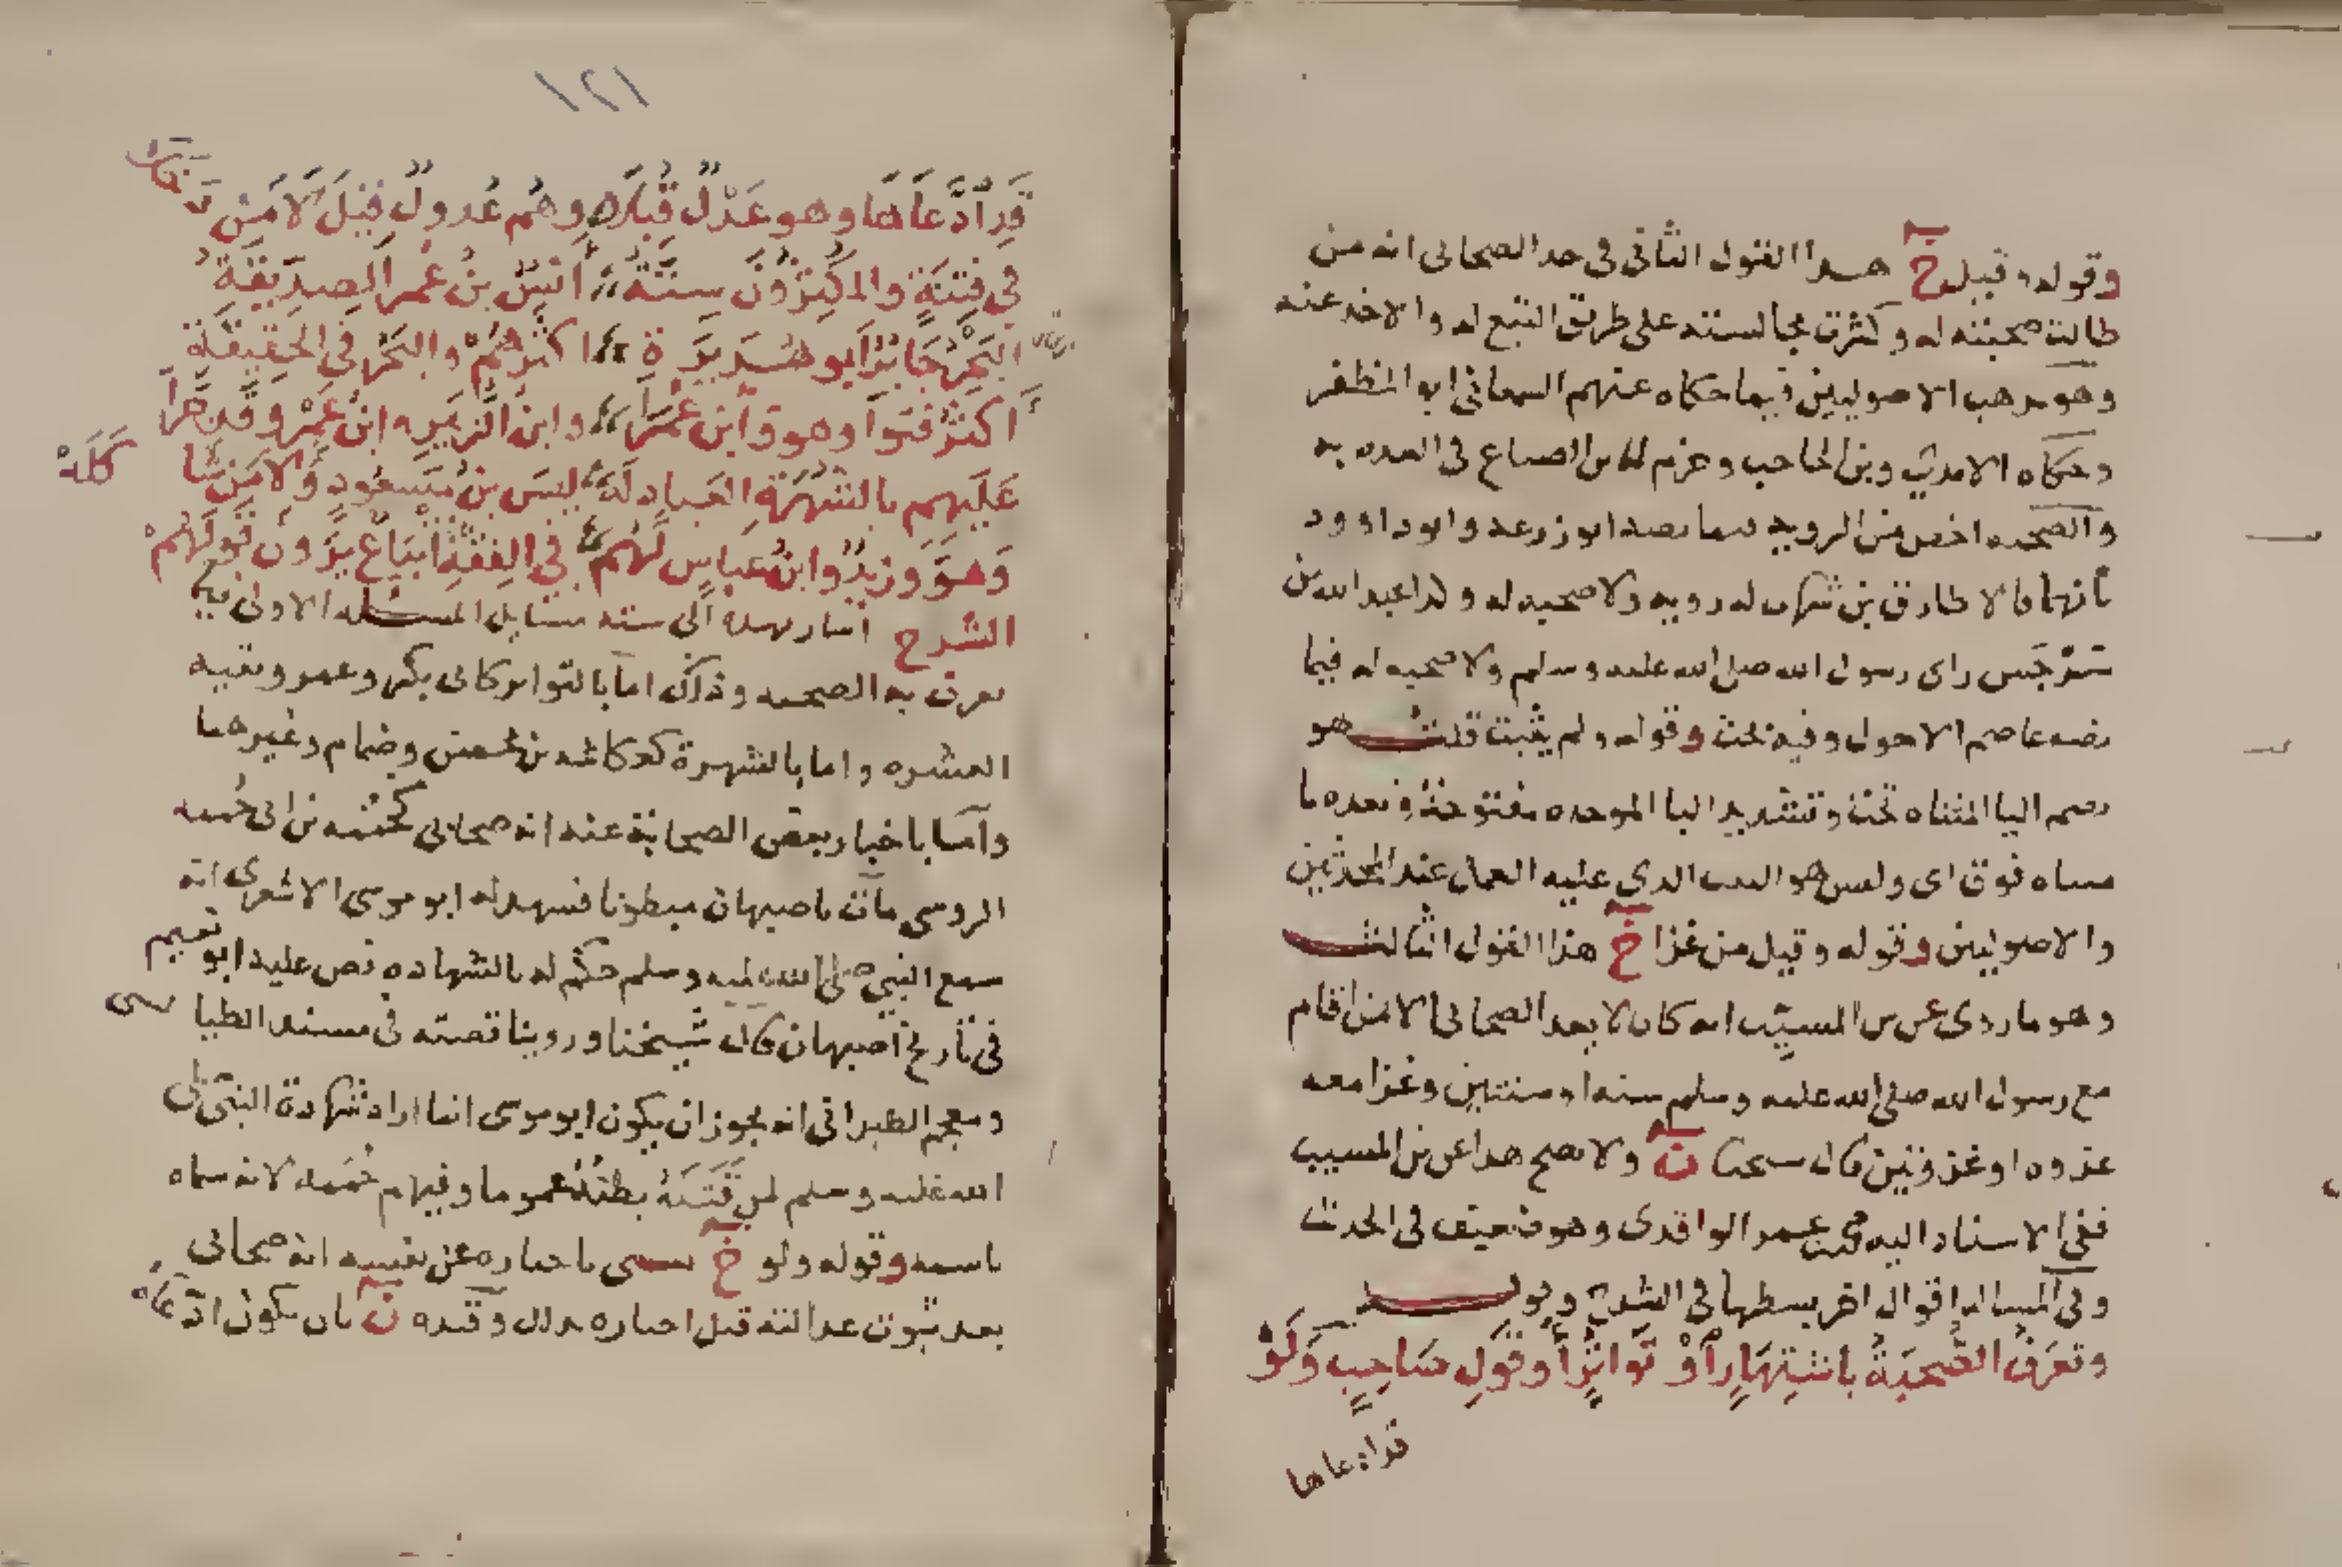 وقوله وقيل خ هذا القول الثاني في حد الصحابي انه من
طالت صحبته له وكثرت مجالسته على طريق التتبع له والاخذ عنه
وهو مذهب الاصوليين فيما حكاه عنهم السمعاني ابو المظفر
وحكاه الامدي وبن الحاجب وجزم به ابن الصباغ في العده
والصحبه اخص من الرويه ابو زرعه وابو داوود
قالا طارق بن شهاب له رويه ولا صحبه له وكذا عبد الله بن
سرجس راى رسول الله صلى الله عليه وسلم ولا صحبه له فيما
نصه عاصم الاحول وفيه بحث وقوله ولم يثبت قلت هو
بضم اليا المثناه تحت وتشديد البا الموحده مفتوحة وبعده تا
مثناه فوق اى وليس هو الثبت الذي عليه العمل عند المحدثين
والاصوليين وقوله وقيل من غزا خ هذا القول الثالث
وهو ما روى عن بن المسيب انه كان لا يعد الصحابي الا من اقام
مع رسول الله صلى الله عليه وسلم سنه او سنتين وغزا معه
غزوه او غزوتين قال شيخنا ن ولا يصح هذا عن بن المسيب
ففي الاسناد اليه محمد بن عمر الواقدى وهو ضعيف في الحديث
وفي المساله اقوال اخر بسطها في الشرح
وتعرف الصحبة باشتهار أو تواترا وقول صاحب ولو
قد ادعاها
١٢١
قد ادعاها وهو عدل قبلا وهم عدول قيل لا من دخلا
في فتنة والمكثرون ستة أنس بن عمر الصديقة
البحر جابر أبو هريرة اكثرهم والبحر في الحقيقة
أكثر فتوا وهو وابن عمرا وابن الزبير وابن عمرو قد جرا
عليهم بالشهرة العبادلة ليس بن مسعود ولا من شا كله
وهو وزيد وابن عباس لهم في الفقه أتباع يرون قولهم
الشرح اشار بهذه الى سته مسايل المسئله الاولى فيما
يعرف به الصحبه وذلك اما بالتواتر كابى بكر وعمر وبقيه
العشره واما بالشهرة كعكاشه بن محصن وضمام وغيرهما
وأما باخبار بعض الصحابة عنه انه صحابي كحممه بن ابى حممه
الدوسي مات باصبهان مبطونا فشهد له ابو موسى الاشعرى انه
سمع النبي صلى الله عليه وسلم حكم له بالشهاده نص عليه ابو نعيم
في تاريخ اصبهان قال شيخنا وروينا قصته في مسند الطيا لسي
ومعجم الطبراني انه يجوز ان يكون ابو موسى انما اراد شهادة النبي صلى
الله عليه وسلم لمن قتله بطنه عموما وفيهم حممه لانه سماه
باسمه وقوله ولو خ باخباره عن نفسه انه صحابي
بعد ثبوت عدالته قبل اخباره بذلك وقيده ن بان يكون ادعاه